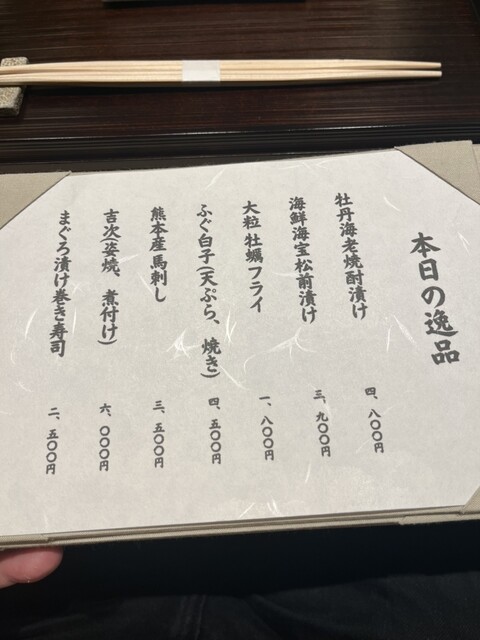 本日の逸品
牡丹海老焼酎漬け 四、八〇〇円
海鮮海宝松前漬け 三、九〇〇円
大粒牡蠣フライ 一、八〇〇円
ふぐ白子(天ぷら、焼き) 四、五〇〇円
熊本産馬刺し 三、五〇〇円
吉次(姿焼、煮付け) 六、〇〇〇円
まぐろ漬け巻き寿司 二、五〇〇円